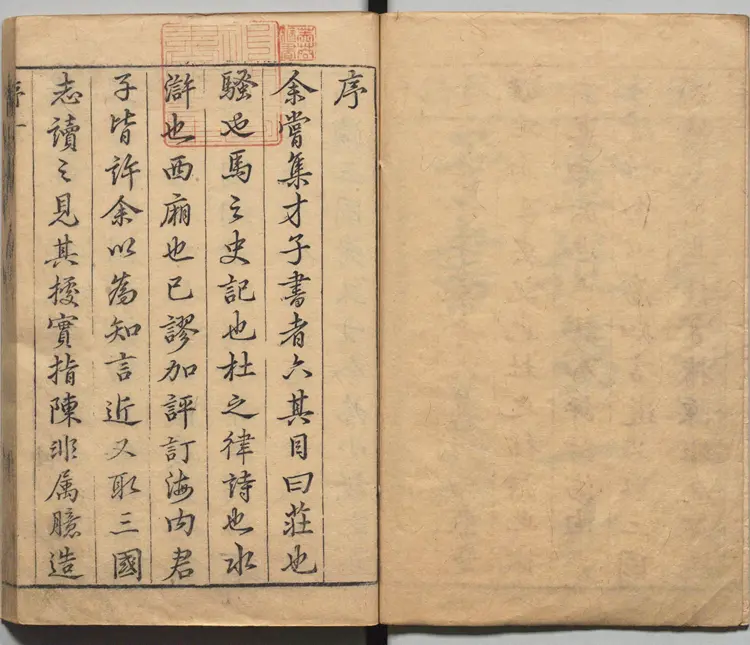 序
余嘗集才子書者六其目曰莊也
騷也馬之史記也杜之律詩也水
滸也西廂也已謬加評訂海内君
子皆許余以為知言近又取三國
志讀之見其據實指陳非属臆造
序一